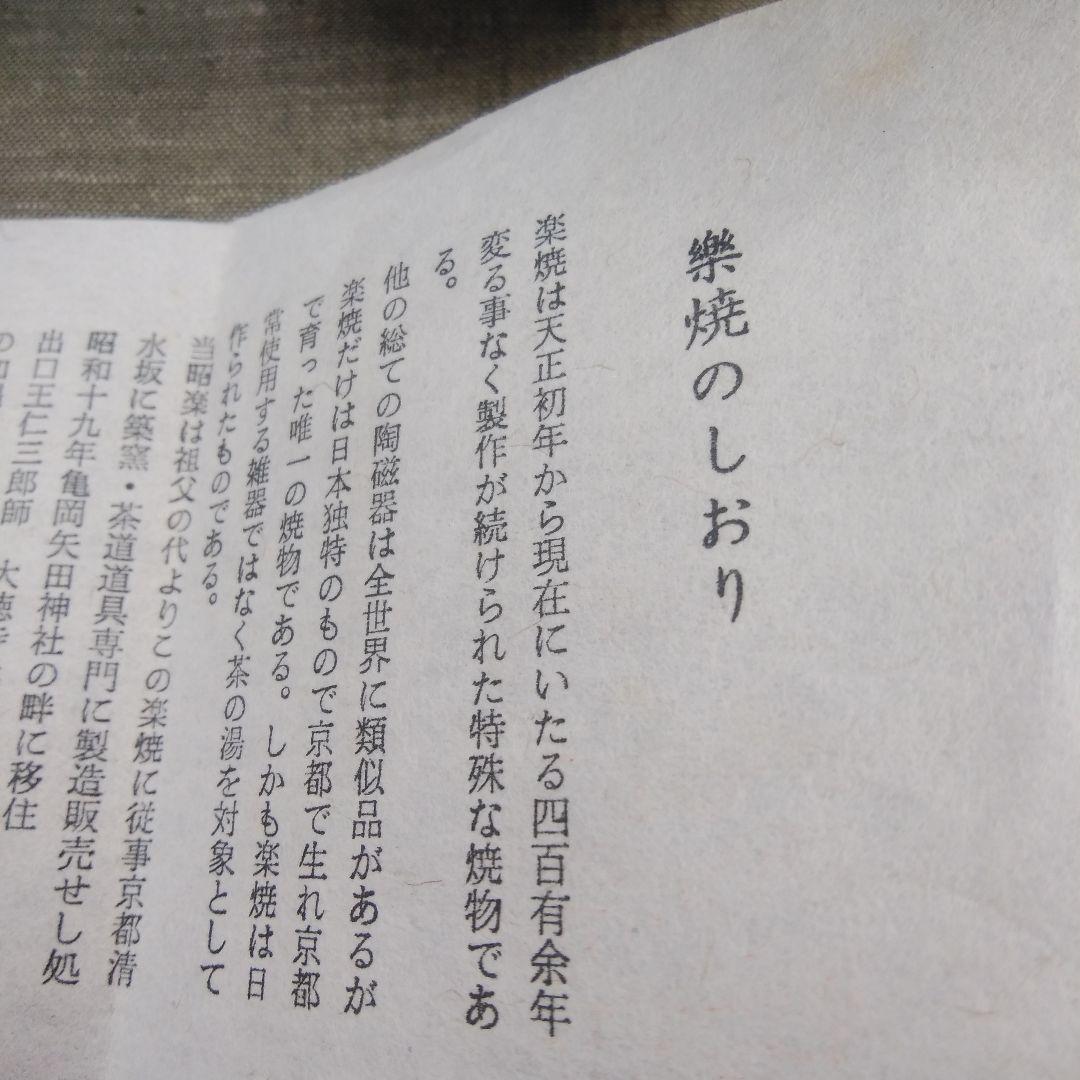 樂焼のしおり
楽焼は天正初年から現在にいたる四百有余年
変る事なく製作が続けられた特殊な焼物であ
る。
他の総ての陶磁器は全世界に類似品があるが
楽焼だけは日本独特のもので京都で生れ京都
で育った唯一の焼物である。しかも楽焼は日
常使用する雑器ではなく茶の湯を対象として
作られたものである。
当昭楽は祖父の代よりこの楽焼に従事京都清
水坂に築窯・茶道道具専門に製造販売せし処
昭和十九年亀岡矢田神社の畔に移住
出口王仁三郎師 大徳寺